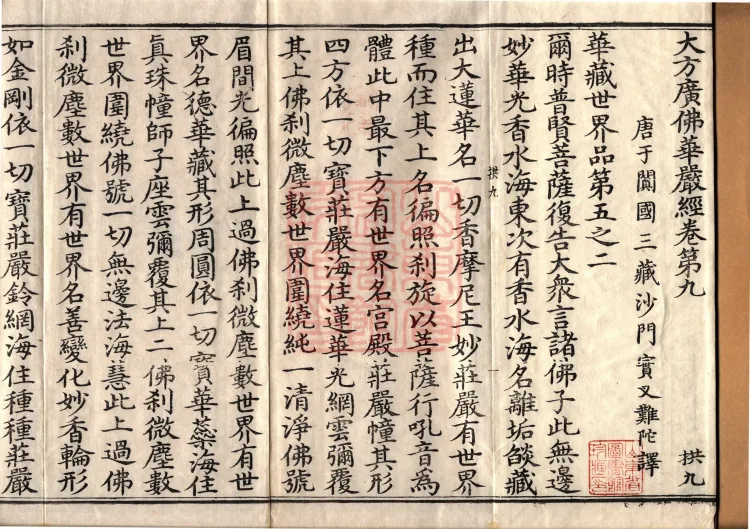 大方廣佛華嚴經卷第九 拱九
唐于闐國三藏沙門實叉難陀譯
華藏世界品第五之二
爾時普賢菩薩復告大衆言諸佛子此無邊
妙華光香水海東次有香水海名離垢燄藏
拱九
出大蓮華名一切香摩尼王妙莊嚴有世界
種而住其上名徧照刹旋以菩薩行吼音為
體此中最下方有世界名宮殿莊嚴幢其形
四方依一切寶莊嚴海住蓮華光網雲彌覆
其上佛刹微塵數世界圍繞純一清淨佛號
眉間光徧照此上過佛刹微塵數世界有世
界名德華藏其形周圓依一切寶華蘂海住
真珠幢師子座雲彌覆其上二佛刹微塵數
世界圍繞佛號一切無邊法海慧此上過佛
刹微塵數世界有世界名善變化妙香輪形
如金剛依一切寶莊嚴鈴網海住種種莊嚴